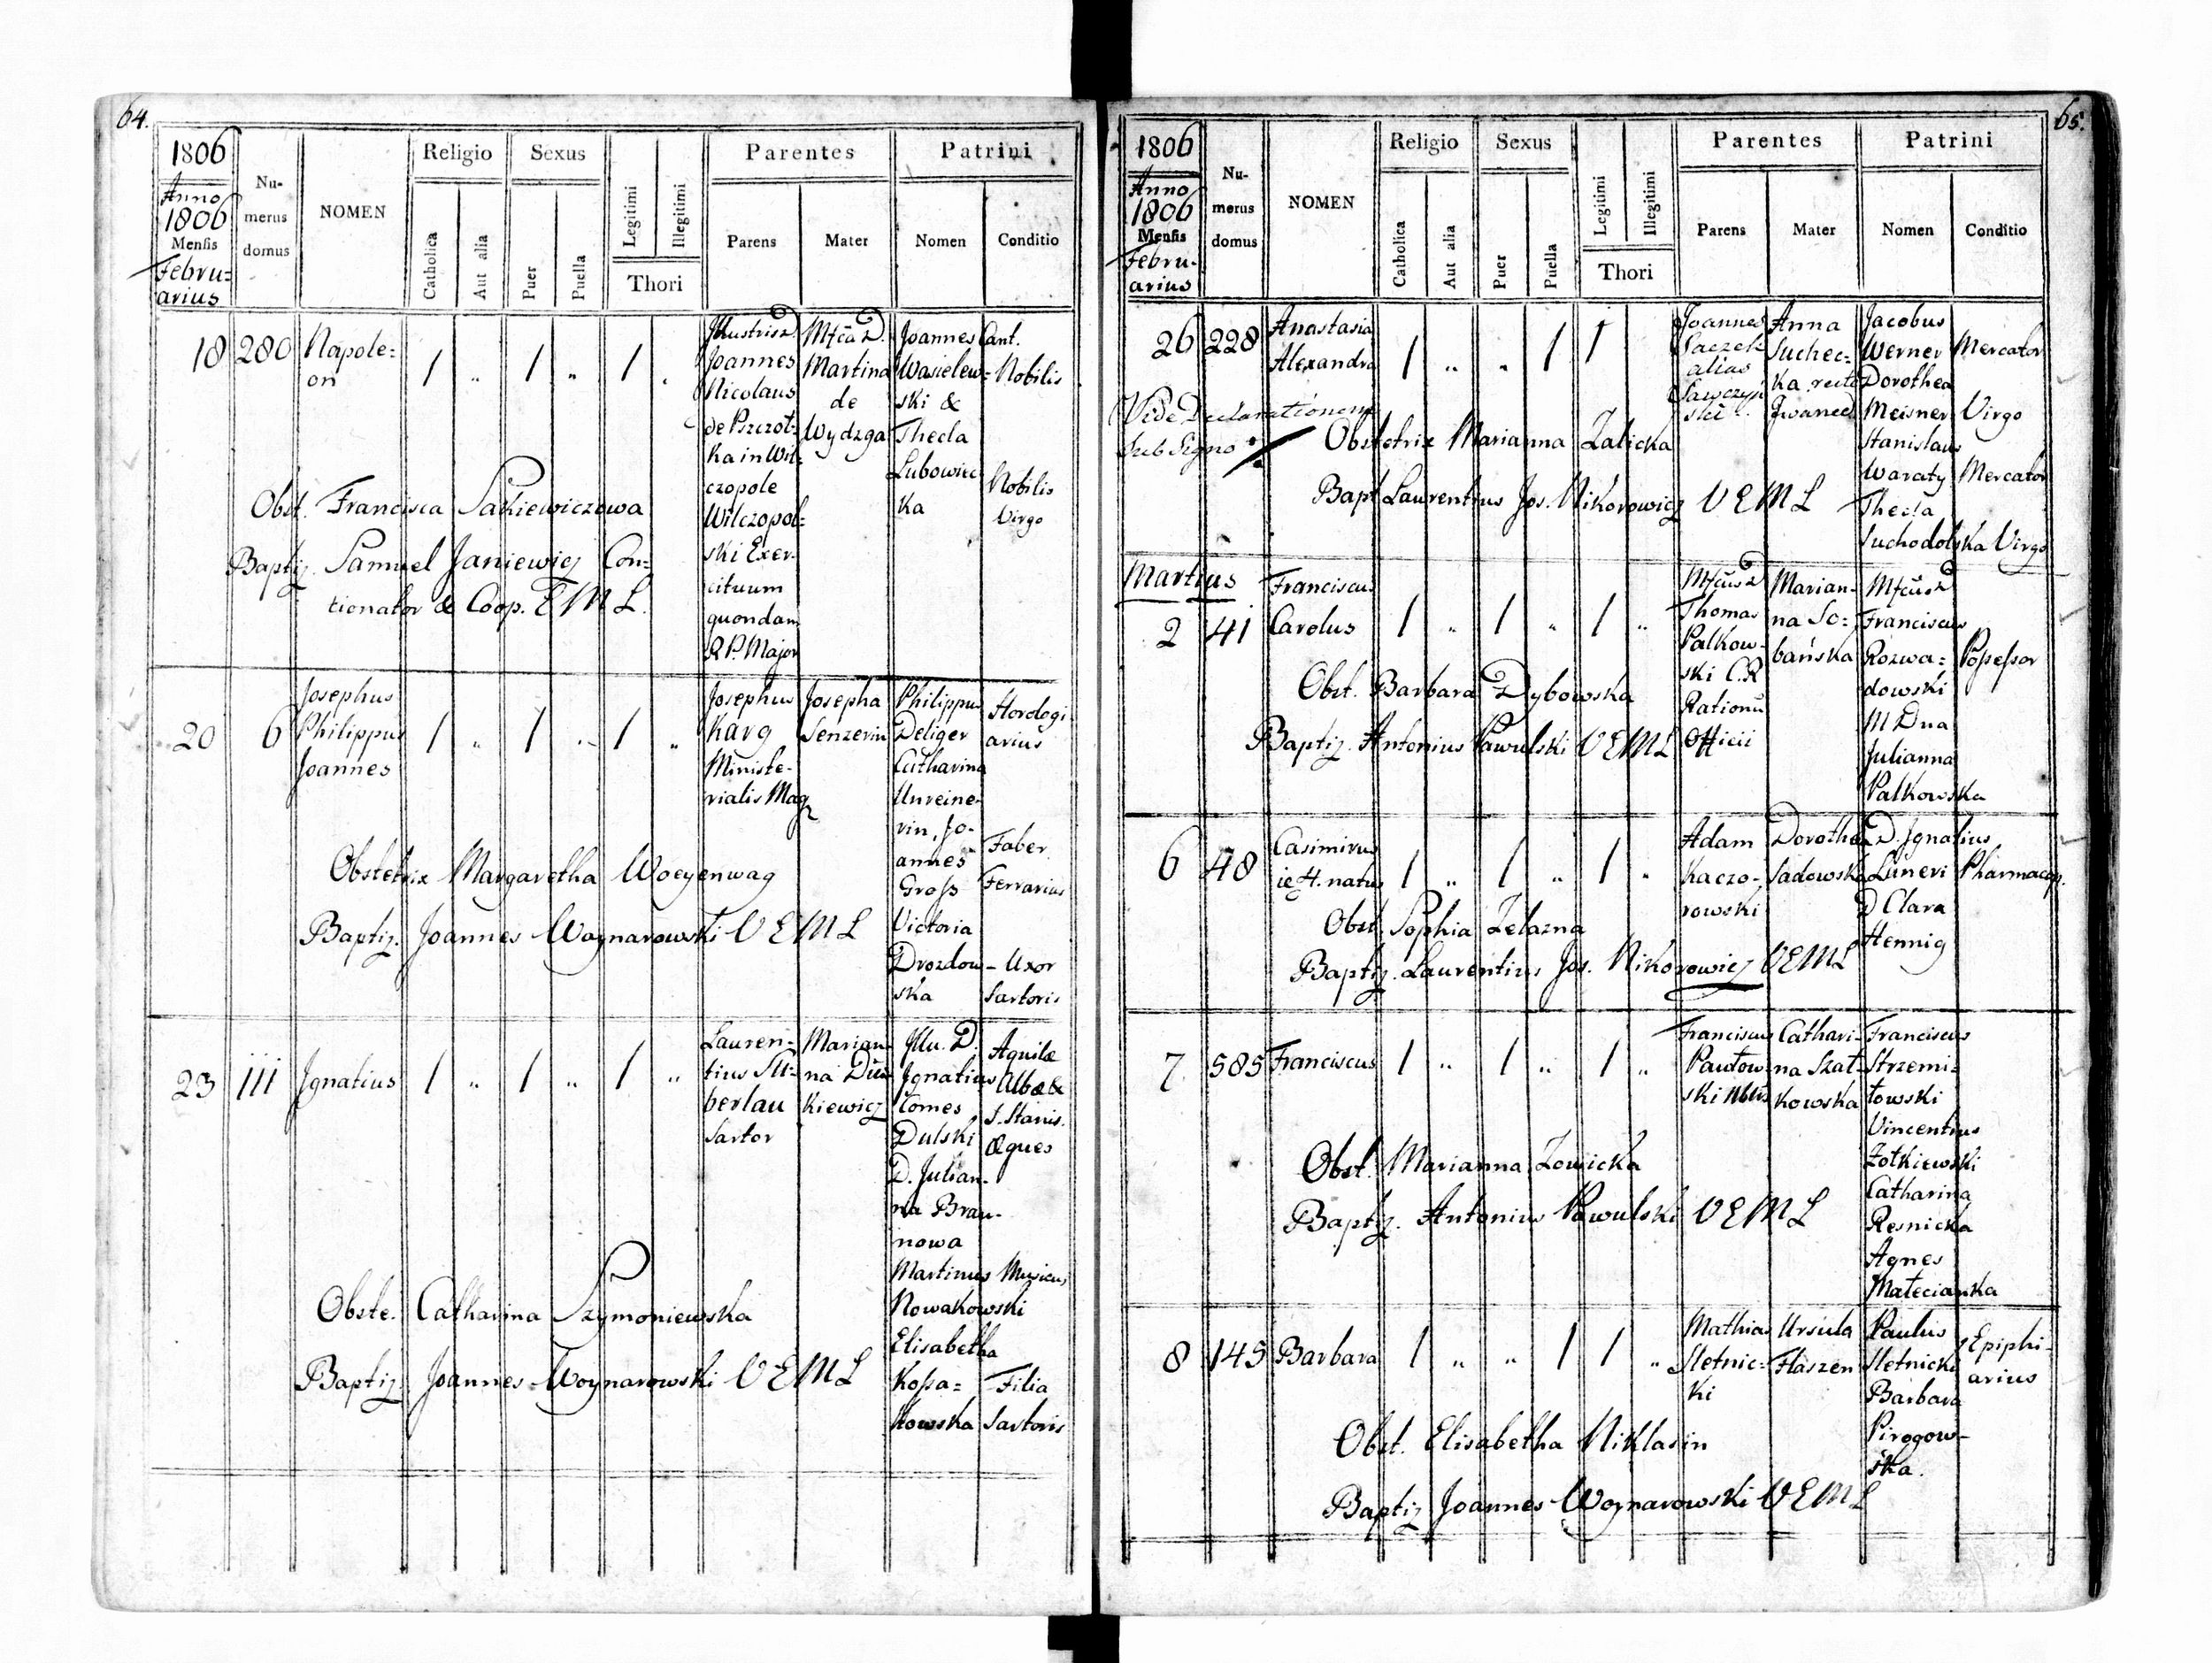 64.
1806
Anno
1806
Mensis
Febru=
arius
Nu-
merus
domus
NOMEN
Religio
Catholica
Aut alia
Sexus
Puer
Puella
Legitimi
Illegitimi
Thori
Parentes
Parens
Mater
Patrini
Nomen
Conditio
18 280 Napole=
on
/ " / " / .
Illustris D.
Joannes
Nicolaus
de Pszczot=
ka in Wil=
czopole
Wilczopol=
ski Exer-
cituum
quondam
R.P. Major
Mfca D.
Martina
de
Wydzga
Joannes Cant.
Wasielew= Nobilis
ski &
Thecla
Lubowiec
ka
Nobilis
Virgo
Obst. Francisca Sakiewiczowa
Baptiz. Samuel Janiewicz Con=
tionator & Coop. E M L.
20 6 Josephus
Philippus
Joannes
/ " / " / "
Josephus
Karg
Ministe-
rialis Mag
Josepha
Senzerin
Philippus
Deliger
Catharina
Unreine-
rin, Jo-
annes
Gross
Victoria
Drozdow-
ska
Horologi
arius
Faber
Ferrarius
Uxor
Sartoris
Obstetrix Margaretha Woeyenwag
Baptiz. Joannes Woynarowski V E M L
23 111 Ignatius
/ " / " / "
Lauren=
tius Sil=
berlau
Sartor
Marian-
na Du=
kiewicz
Illu. D.
Ignatius
Comes
Dulski
D. Julian-
na Brau-
nowa
Martinus Musicus
Nowakowski
Elisabetha
Kossa=
kowska
Aquilæ
Albæ &
S. Stanis.
Eques
Filia
Sartoris
Obste. Catharina Szymoniewska
Baptiz. Joannes Woynarowski V E M L
65.
1806
Anno
1806
Mensis
Febru-
arius
Nu-
merus
domus
NOMEN
Religio
Catholica
Aut alia
Sexus
Puer
Puella
Legitimi
Illegitimi
Thori
Parentes
Parens
Mater
Patrini
Nomen
Conditio
26 228 Anastasia
Alexandra
/ " " / /
Joannes
Saczek
alias
Sawczyń
ski
Anna
Suchec=
ka recte
Jacobus
Werner Mercator
Dorothea
Meisner Virgo
Stanislaus
Waraty Mercator
Thecla
Suchodolska Virgo
Vide Declarationem
Sub Signo
Obstetrix Marianna Zalicka
Bapt. Laurentius Jos. Nikorowicz V E M L
Martius
2 41 Franciscus
Carolus
/ " / " / "
Mfcus D
Thomas
Palkow-
ski C.R
Rationū
Officii
Marian-
na So=
bańska
Mfcus D
Franciscus
Rozwa=
dowski
M Dna
Julianna
Palkowska
Possessor
Obst. Barbara Dybowska
Baptiz. Antonius Pawulski V E M L
6 48 Casimirus
ie H. natus
/ " / " / "
Adam
Kaczo-
rowski
Dorothea
Sadowska
D. Ignatius
Luneri Pharmacop.
D Clara
Hennig
Obst. Sophia Zelazna
Baptiz. Laurentius Jos. Nikorowicz V E M L
7 585 Franciscus
/ " / " / "
Franciscus
Pawtow-
ski
Cathari-
na Szat-
kowska
Franciscus
Strzemi=
towski
Vincentius
Zotkiewski
Catharina
Resnicka
Agnes
Matecianka
Obst. Marianna Lowicka
Baptiz. Antonius Pawulski V E M L
8 145 Barbara
/ " " / / "
Mathias
Sletnic=
ki
Ursula
Flaszen
Paulus
Sletnicki
Barbara
Pirogow-
ska.
Epiphi-
arius
Obst. Elisabetha Niklasin
Baptiz Joannes Woynarowski V E M L